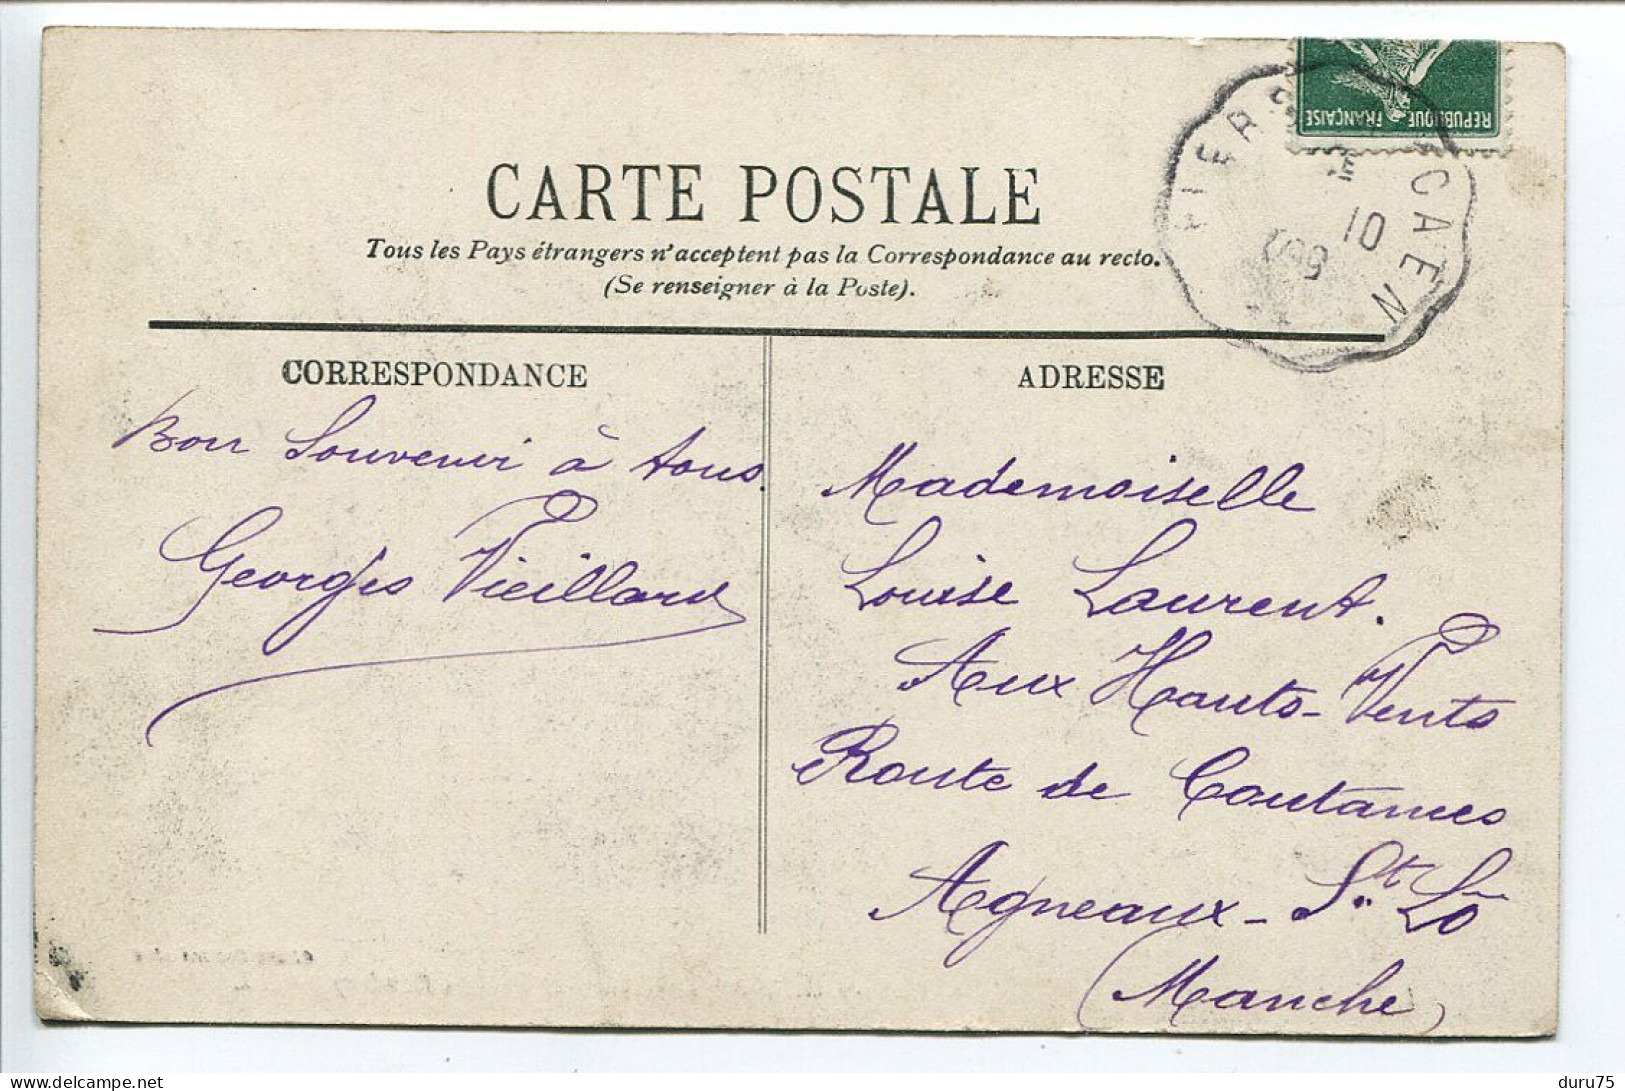 REPUBLIQUE FRANÇAISE
CAEN
10
09
CARTE POSTALE
Tous les Pays étrangers n'acceptent pas la Correspondance au recto.
(Se renseigner à la Poste).
CORRESPONDANCE
Bon Souvenir à tous.
Georges Vieillard
ADRESSE
Mademoiselle
Louise Laurent.
Aux Hauts-Vents
Route de Coutances
Agneaux - St. Lô
(Manche)
delcampe.net
duru75